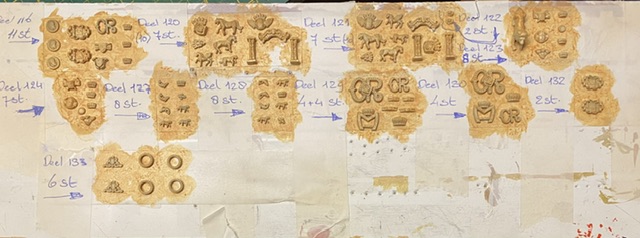 Deel 116
11 st
Deel 120
7 st.
Deel 121
7 st
Deel 122
2 st
Deel 123
8 st.
Deel 124
7 st
Deel 127
8 st.
Deel 128
8 st.
Deel 129
4+4 st
Deel 130
4 st
Deel 132
2 st.
Deel 133
6 st